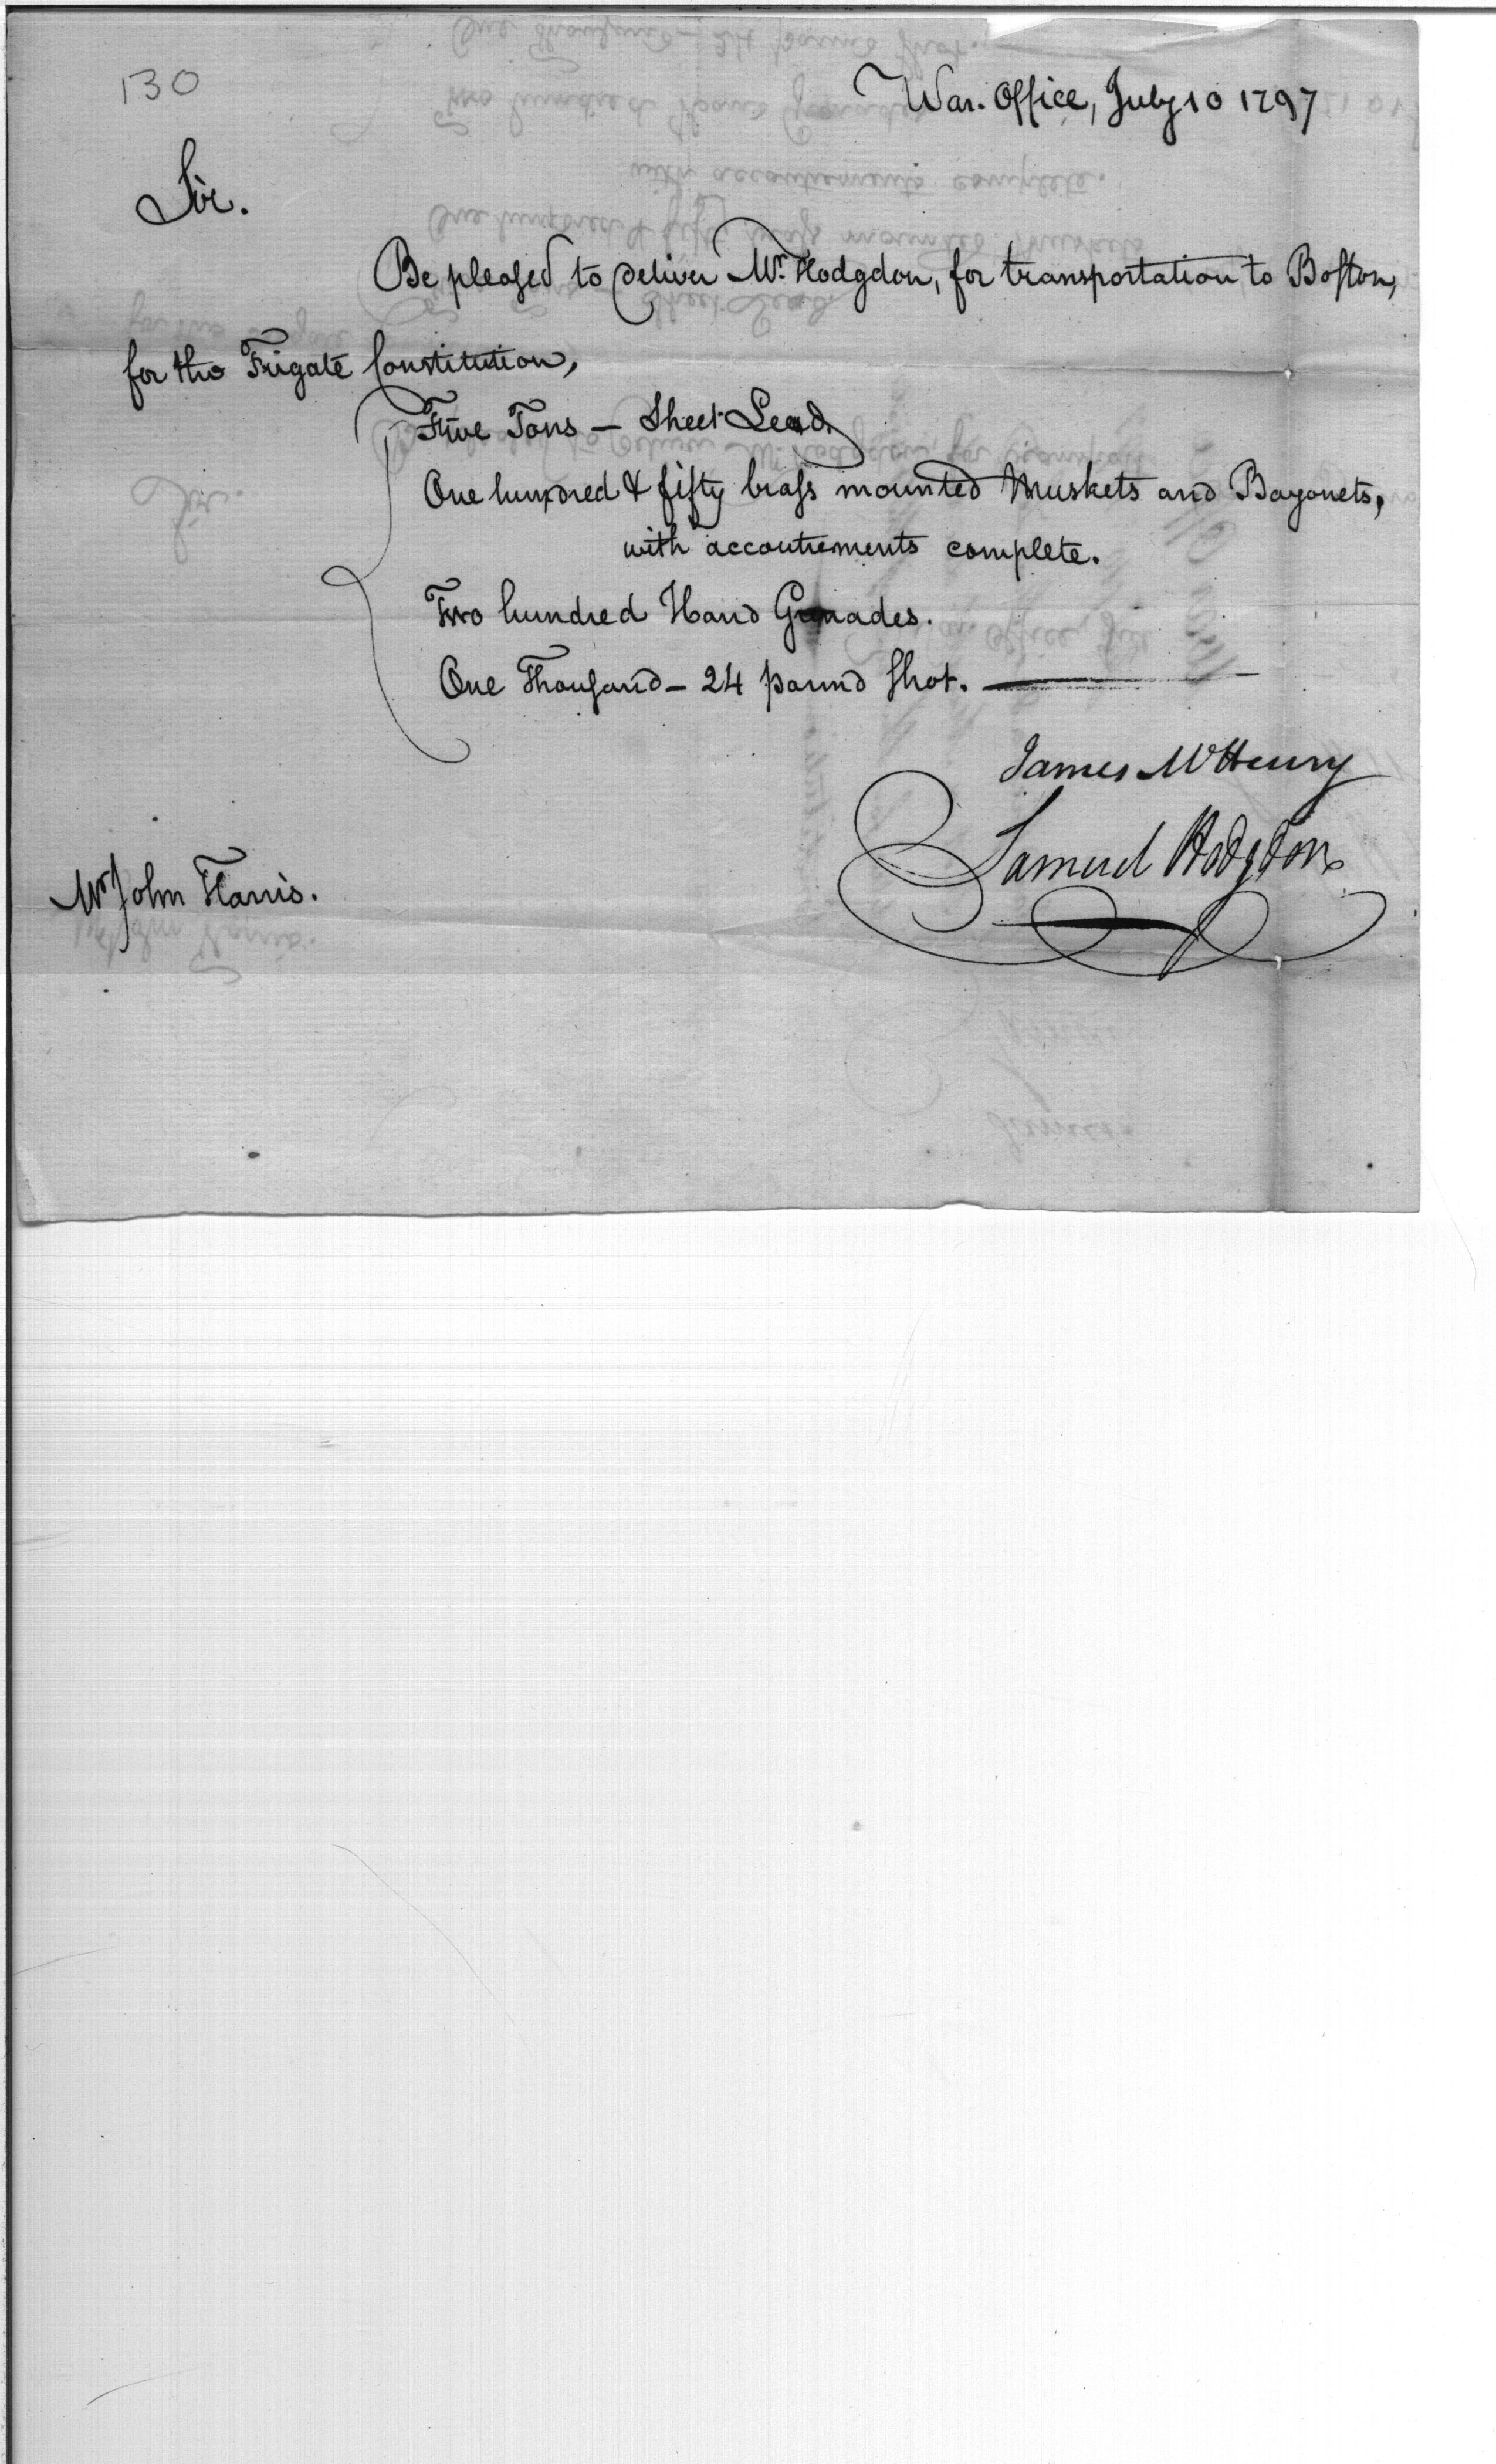 130
War Office, July 10 1797
Sir.
Be pleased to deliver Mr. Hodgdon, for transportation to Boston,
for the Frigate Constitution,
Five Tons — Sheet Lead.
One hundred & fifty brass mounted Muskets and Bayonets,
with accoutrements complete.
Two hundred Hand Grenades.
One Thousand — 24 pound shot.
James McHenry
Samuel Hodgdon
Mr John Harris.